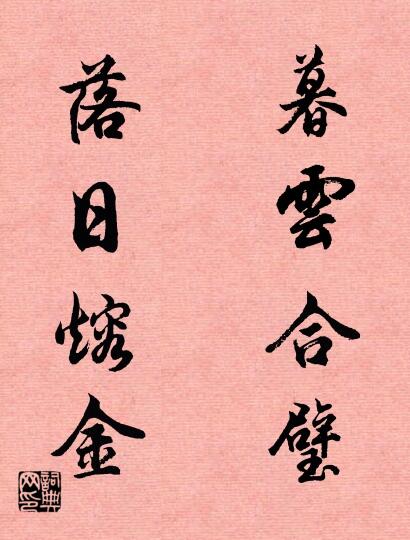 暮雲合璧
落日熔金
詞典網印